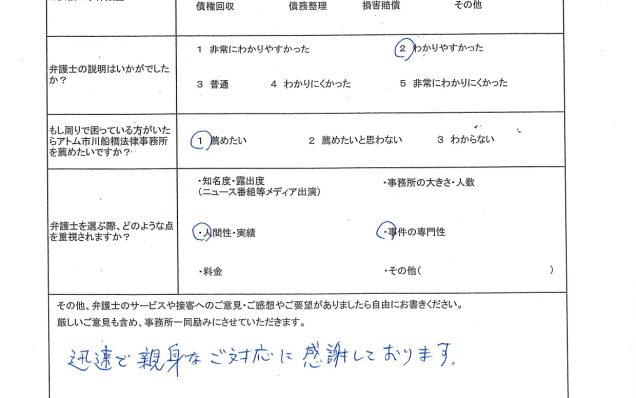 債権回収 債務整理 損害賠償 その他
弁護士の説明はいかがでした
か?
1 非常にわかりやすかった 2 わかりやすかった
3 普通 4 わかりにくかった 5 非常にわかりにくかった
もし周りで困っている方がいた
らアトム市川船橋法律事務所
を薦めたいですか?
1 薦めたい 2 薦めたいと思わない 3 わからない
弁護士を選ぶ際、どのような点
を重視されますか?
・知名度・露出度
(ニュース番組等メディア出演)
・事務所の大きさ・人数
・人間性・実績 ・事件の専門性
・料金 ・その他( )
その他、弁護士のサービスや接客へのご意見・ご感想やご要望がありましたら自由にお書きください。
厳しいご意見も含め、事務所一同励みにさせていただきます。
迅速で親身なご対応に感謝しております。